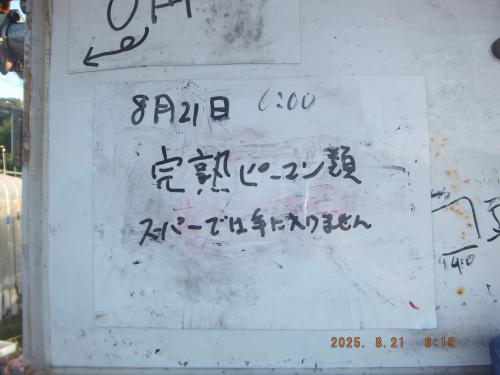 8月21日 6:00
完熟ピーマン類
スーパーでは手に入りません
140
2025. 8.21 6:19